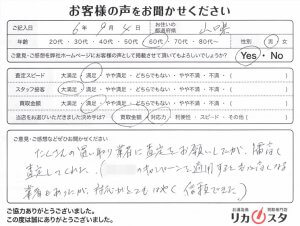 お客様の声をお聞かせください
ご記入日 6年 9月 4日 お住いの都道府県 山口県
年齢 20代・30代・40代・50代・60代・70代・80代〜 性別 男・女
ご意見・ご感想を弊社ホームページにお客様の声として掲載させて頂いてもよろしいでしょうか? Yes・No
査定スピード 大満足・満足・やや満足・どちらでもない・やや不満・不満・その他( )
スタッフ接客 大満足・満足・やや満足・どちらでもない・やや不満・不満・その他( )
買取金額 大満足・満足・やや満足・どちらでもない・やや不満・不満・その他( )
当店をお選びいただきました決め手は? 買取金額・対応力・利便性・スピード・その他( )
ご意見・ご感想などぜひお聞かせください
たくさんの買い取り業者に査定をお願いしたが、
査定してくれた。(
業者もあったが、対応がとてもはやく信頼できた)
ご協力ありがとうございました。
この度は誠にありがとうございました。
お酒高価買取専門店
リカスタ